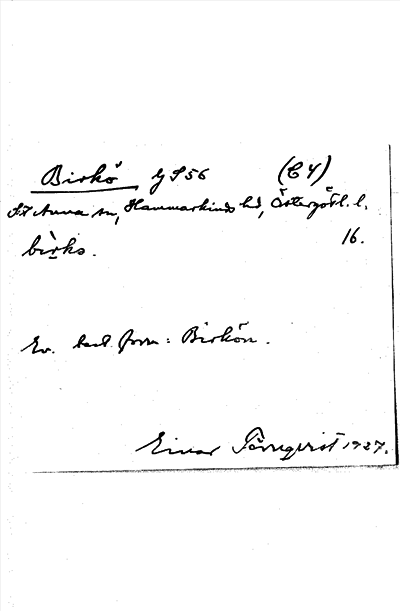 Birkö lj S56 (C4)
S:t Anna sn, Hammarkinds hd, Östergötl. l.
16.
bìrkɷ.
Ev. best form: Birkön.
Einar Törnqvist 1927.